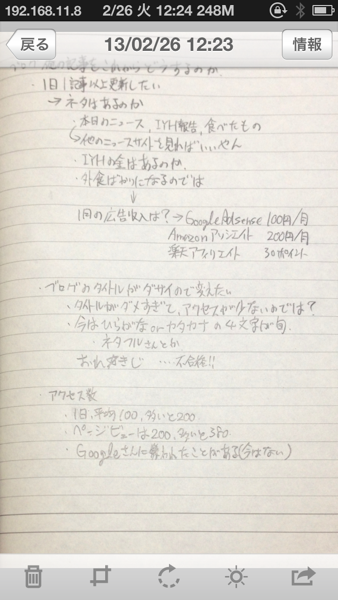 192.168.11.8 2/26 火 12:24 248M
戻る 13/02/26 12:23 情報
の記事をこれからどうするのか
・1日1記事以上更新したい
→ネタはあるのか
・本日のニュース、IYH報告、食べたもの
↳他のニュースサイトを見ればいいやん
・IYHの金はあるのか
・外食ばかりになるのでは
↓
1回の広告収入は?→GoogleAdsense 100円/月
Amazonアソシエイト 200円/月
楽天アフィリエイト 30ポイント
・ブログのタイトルがダサイので変えたい
・タイトルがダメすぎて、アクセスが少ないのでは?
・今はひらがなorカタカナの4文字が旬
・ネタフルさんとか
…不合格!!
・アクセス数
・1日、平均100、多いと200
・ページビューは200、多いと350
・Googleさんに嫌われたことがある(今はない)